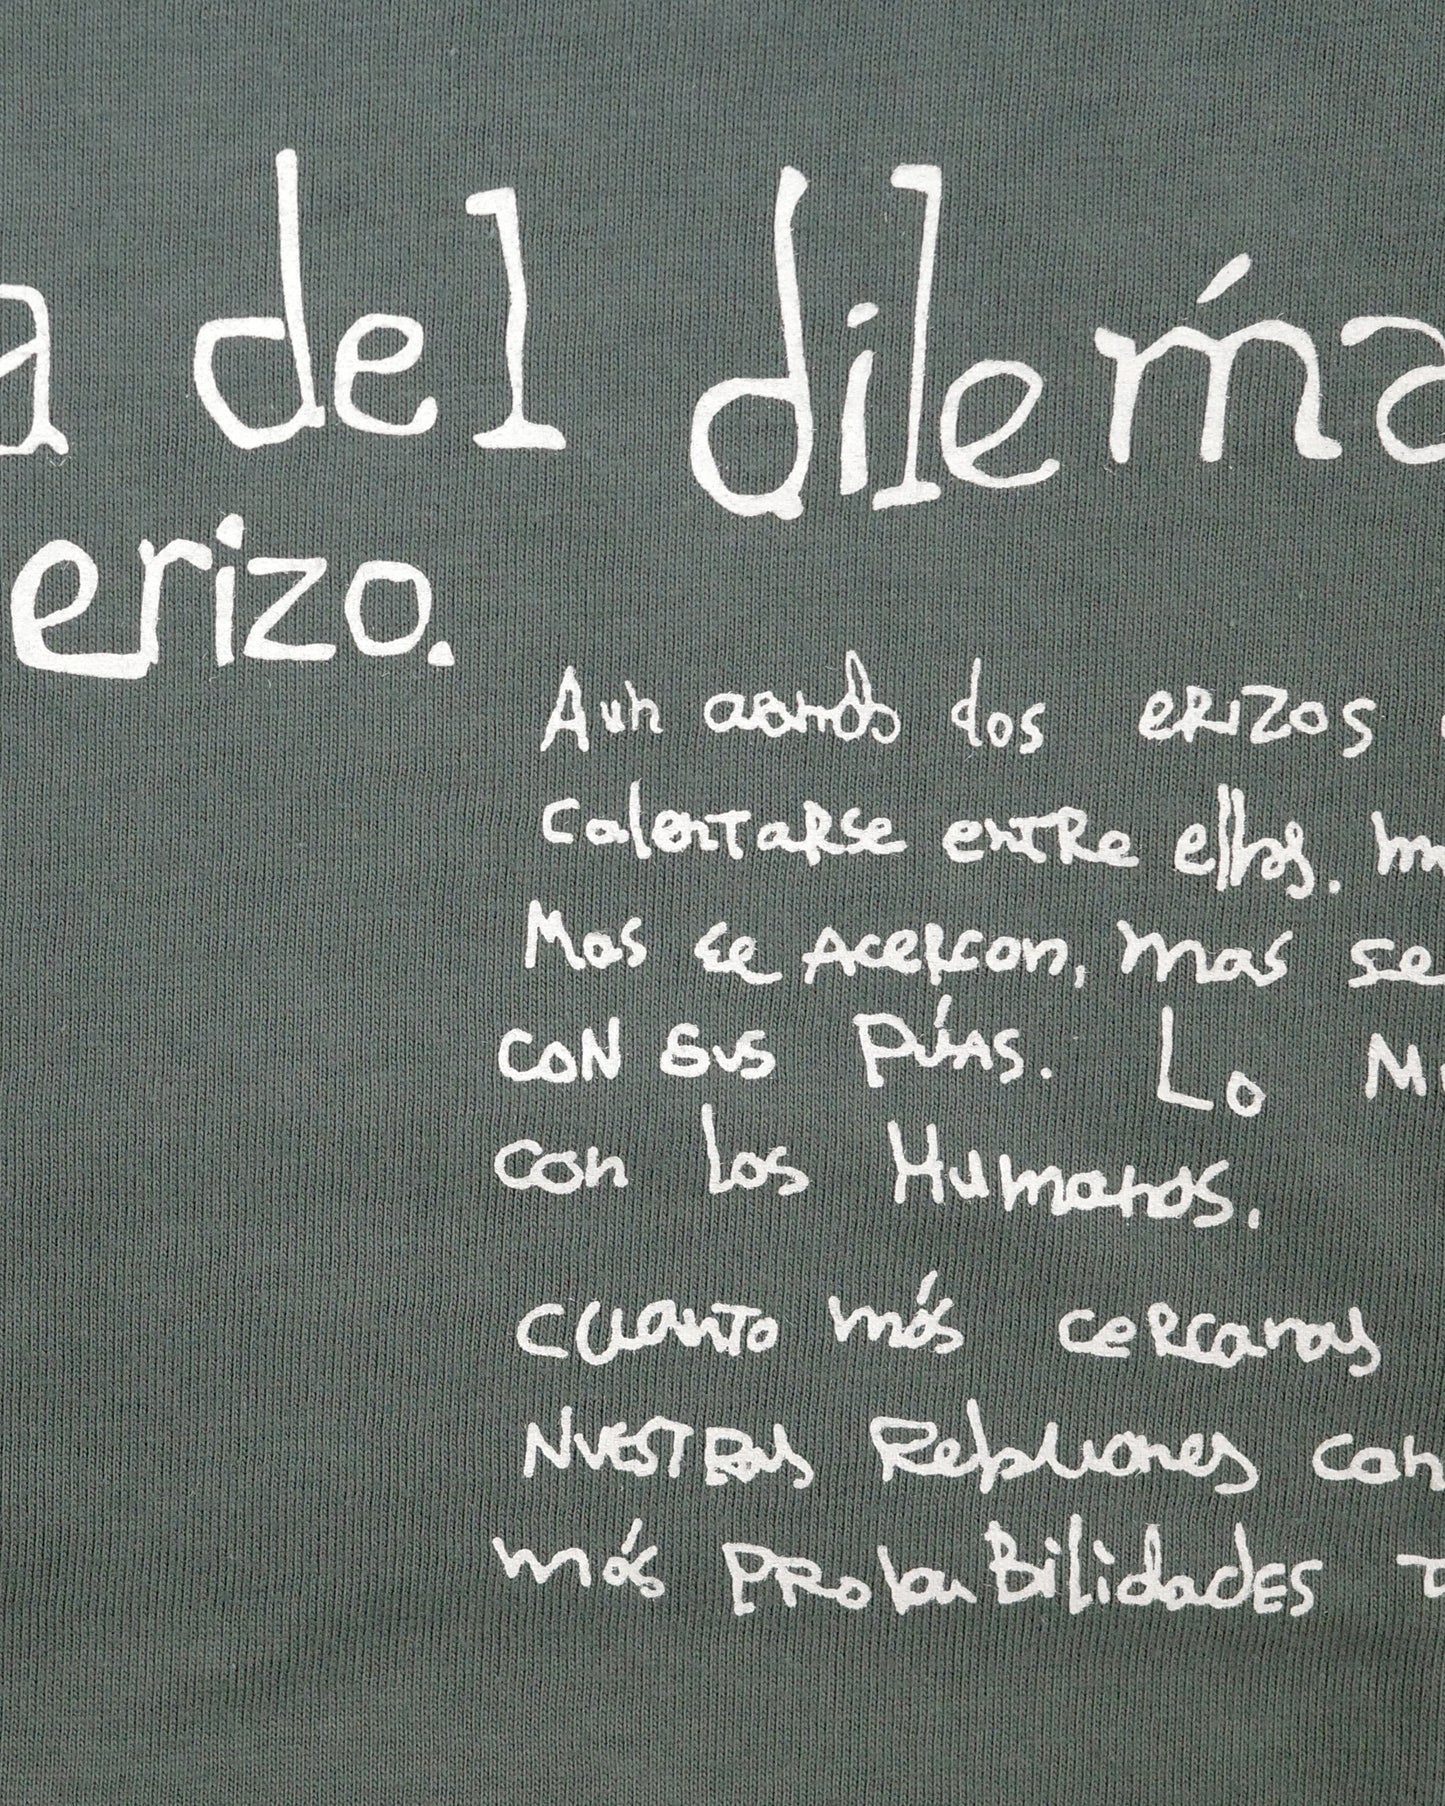 a del dilema
erizo.
Aun cuando dos erizos
calentarse entre ellos.
Mas se acercan, mas se
con sus púas. Lo
con los Humanos.
cuanto más cercanas
nuestras Relaciones con
más probabilidades